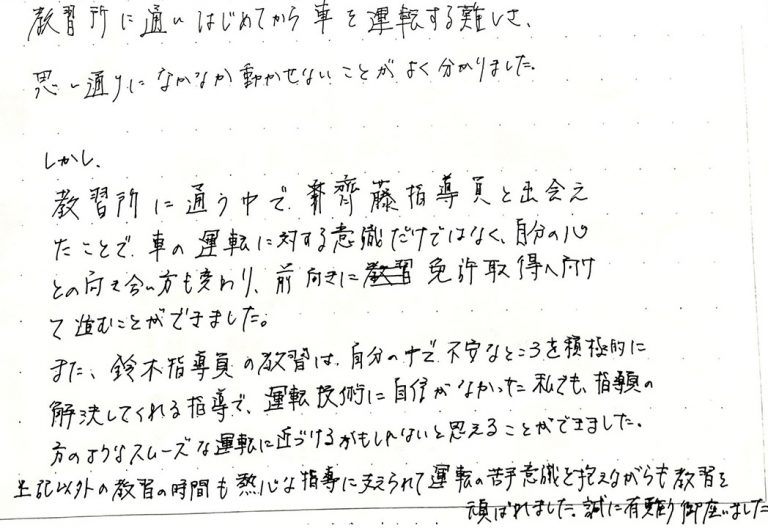 教習所に通いはじめてから車を運転する難しさ、
思い通りになかなか動かせないことがよく分かりました。
しかし、
教習所に通う中で、齊藤指導員と出会え
たことで、車の運転に対する意識だけではなく、自分の心
との向き合い方も変わり、前向きに免許取得へ向け
て進むことができました。
また、鈴木指導員の教習は、自分の中で不安なところを積極的に
解決してくれる指導で、運転技術に自信がなかった私でも、指導員の
方のようなスムーズな運転に近づけるかもしれないと思えることができました。
上記以外の教習の時間も熱心な指導に支えられて運転の苦手意識を抱えながらも教習を
頑ばれました。誠に有難う御座いました